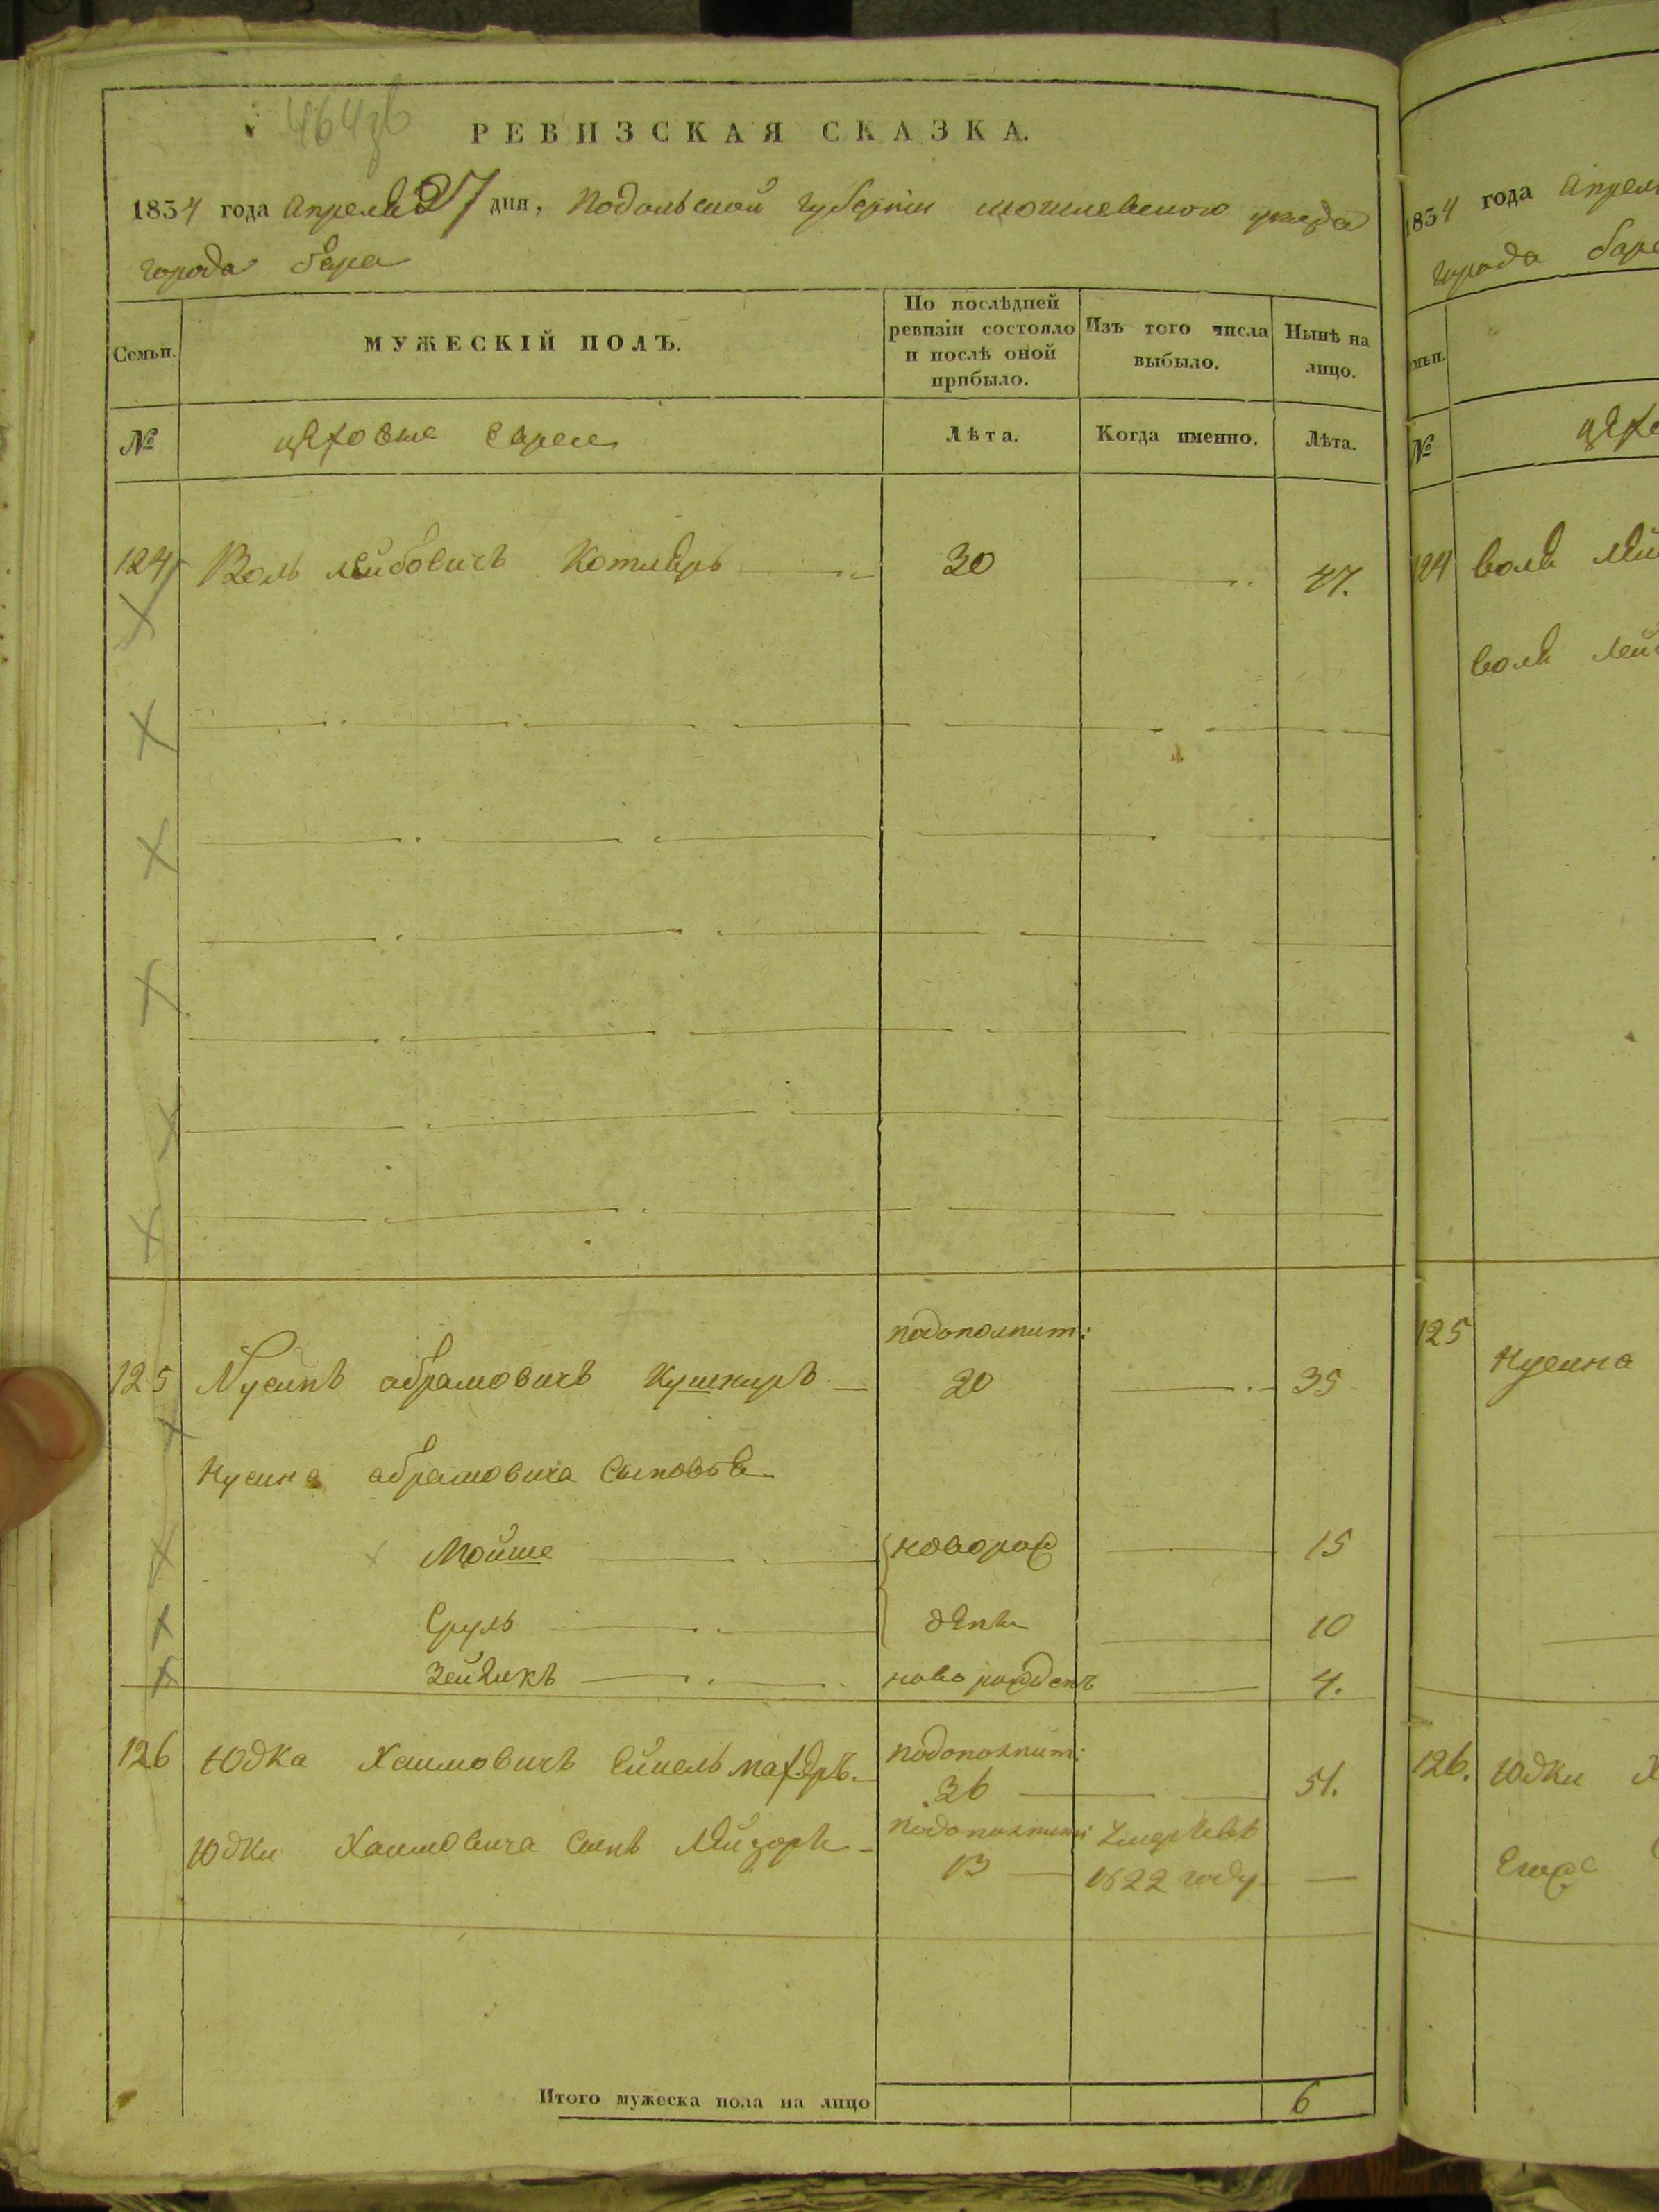 464зв
РЕВИЗСКАЯ СКАЗКА.
1834 года Апреля 27 дня, Подольской губерніи могилевского уезда
города бара
Семьи.
МУЖЕСКІЙ ПОЛЪ.
По послѣдней ревизіи состояло и послѣ оной прибыло.
Изъ того числа выбыло.
Нынѣ на лицо.
№
цеховые евреи
Лѣта.
Когда именно.
Лѣта.
124 Воль лейбовичъ Котляръ 30 47.
подополнит:
125 Нусинъ абрамовичъ Кушниръ 20 35
Нусина абрамовича сыновья
Мойше новорож 15
Сруль дены 10
Зейликъ новорожденъ 4.
126 Юдка Хаимовичъ подополнит:
36 51.
Юдки Хаимовича сынъ Лейзоръ подополнит: Умеръ въ
13 1822 году
Итого мужеска пола на лицо 6
1834 года Апреля
города бара
№
124 воля Лей
воля Лей
125
Нусина
126. Юдки Х